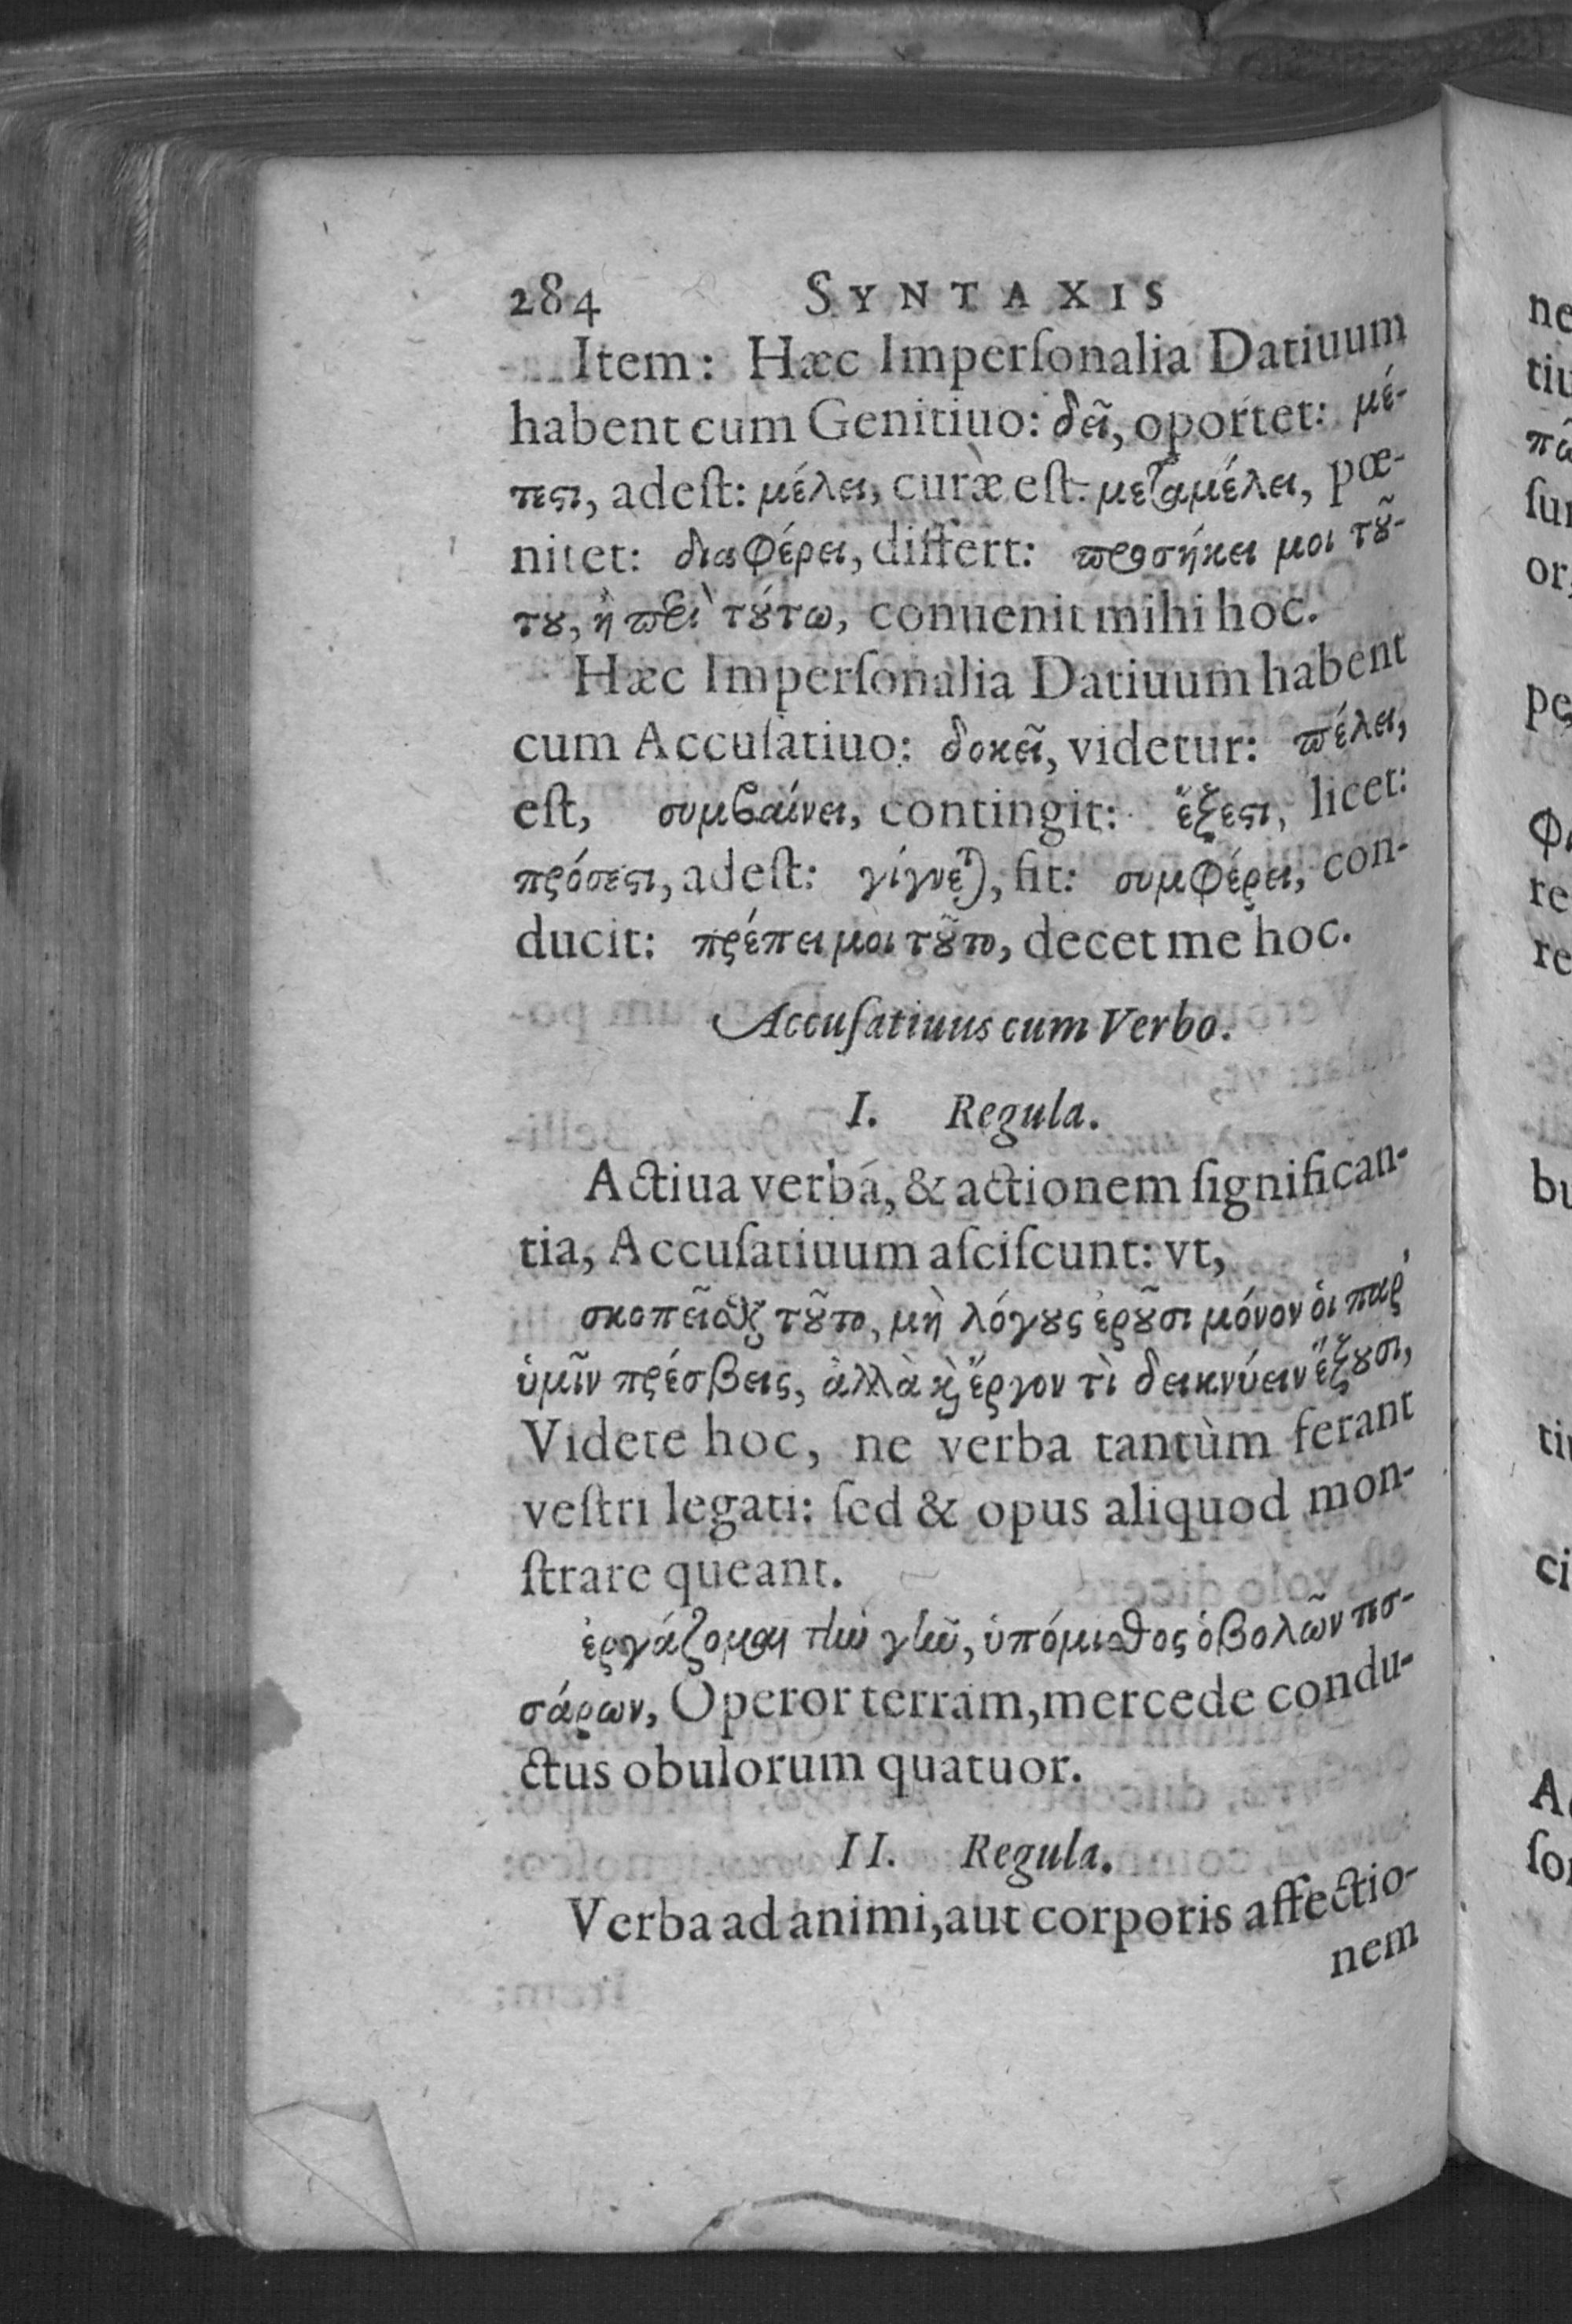 284 SYNTAXIS
Item: Hæc Imperſonalia Datiuum
habent cum Genitiuo: δεῖ, oportet: μέ-
τεϛι, adeſt: μέλει, curæ eſt: μεταμέλει, pœ-
nitet: διαφέρει, differt: προσήκει μοι τȣ͂-
τȣ, ἢ περὶ τȣ́τω, conuenit mihi hoc.
Hæc Imperſonalia Datiuum habent
cum Accuſatiuo: δοκεῖ, videtur: πέλει,
eſt, συμβαίνει, contingit: ἔξεϛι, licet:
πρόσεϛι, adeſt: γίγνεται, fit: συμφέρει, con-
ducit: πρέπει μοι τȣ͂το, decet me hoc.
Accuſatiuus cum Verbo.
I. Regula.
Actiua verba, & actionem ſignifican-
tia, Accuſatiuum aſciſcunt: vt,
σκοπεῖσθε τȣ͂το, μὴ λόγȣς ἐρȣ͂σι μόνον ὁι παρ'
ὑμῖν πρέσβεις, ἀλλὰ κὶ ἔργον τὶ δεικνύειν ἕξȣσι,
Videte hoc, ne verba tantùm ferant
veſtri legati: ſed & opus aliquod mon-
ſtrare queant.
ἐργάζομαι τὴν γῆν, ὑπόμισθος ὀβολῶν τεσ-
σάρων, Operor terram, mercede condu-
ctus obulorum quatuor.
II. Regula.
Verba ad animi, aut corporis affectio-
nem